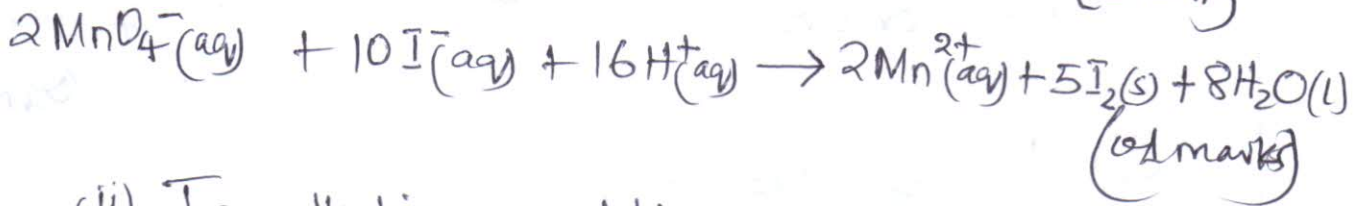 2MnO₄⁻(aq) + 10I⁻(aq) + 16H⁺(aq) → 2Mn²⁺(aq) + 5I₂(s) + 8H₂O(l)
marks)
(ii)